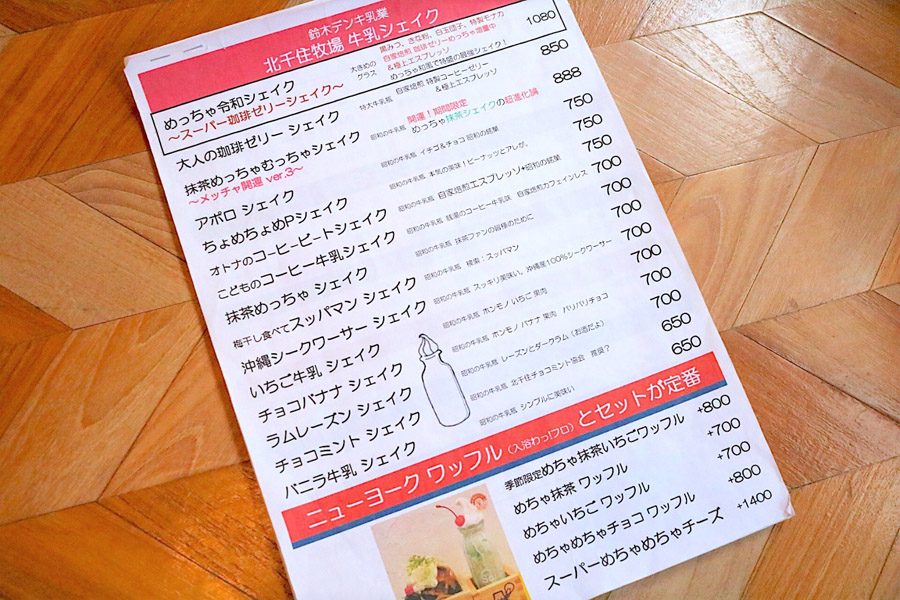 鈴木デンキ乳業
北千住牧場 牛乳シェイク
めっちゃ令和シェイク 大きめのグラス 黒みつ、きな粉、白玉団子、特製モナカ 1080
〜スーパー珈琲ゼリーシェイク〜 自家焙煎 珈琲ゼリーめっちゃ増量中
&極上エスプレッソ
めっちゃ和風で特盛の最強シェイク!
大人の珈琲ゼリー シェイク 特大牛乳瓶 自家焙煎 特製コーヒーゼリー 850
&極上エスプレッソ
抹茶めっちゃむっちゃシェイク 昭和の牛乳瓶 開運!期間限定 888
〜メッチャ開運 ver.3〜 めっちゃ抹茶シェイクの超進化論
アポロ シェイク 昭和の牛乳瓶 イチゴ&チョコ 昭和の銘菓 750
ちょめちょめPシェイク 昭和の牛乳瓶 本気の美味!ピーナッツとアレが。 750
オトナのコーヒービートシェイク 昭和の牛乳瓶 自家焙煎エスプレッソ+昭和の銘菓 700
こどものコーヒー牛乳シェイク 昭和の牛乳瓶 銭湯のコーヒー牛乳味 自家焙煎カフェインレス 700
抹茶めっちゃ シェイク 昭和の牛乳瓶 抹茶ファンの皆様のために 700
梅干し食べてスッパマン シェイク 昭和の牛乳瓶 検索:スッパマン 700
沖縄シークワーサー シェイク 昭和の牛乳瓶 スッキリ美味い、沖縄産100%シークワーサー 700
いちご牛乳 シェイク 昭和の牛乳瓶 ホンモノ いちご 果肉 700
チョコバナナ シェイク 昭和の牛乳瓶 ホンモノ バナナ 果肉 パリパリチョコ 700
ラムレーズン シェイク 昭和の牛乳瓶 レーズンとダークラム(お酒だよ) 700
チョコミント シェイク 昭和の牛乳瓶 北千住チョコミント協会 推奨? 650
バニラ牛乳 シェイク 昭和の牛乳瓶 シンプルに美味い 650
ニューヨーク ワッフル(入浴わっ!フロ)とセットが定番
季節限定めちゃ抹茶いちごワッフル +800
めちゃ抹茶 ワッフル
めちゃいちご ワッフル +700
めちゃめちゃチョコ ワッフル +800
スーパーめちゃめちゃチーズ +1400